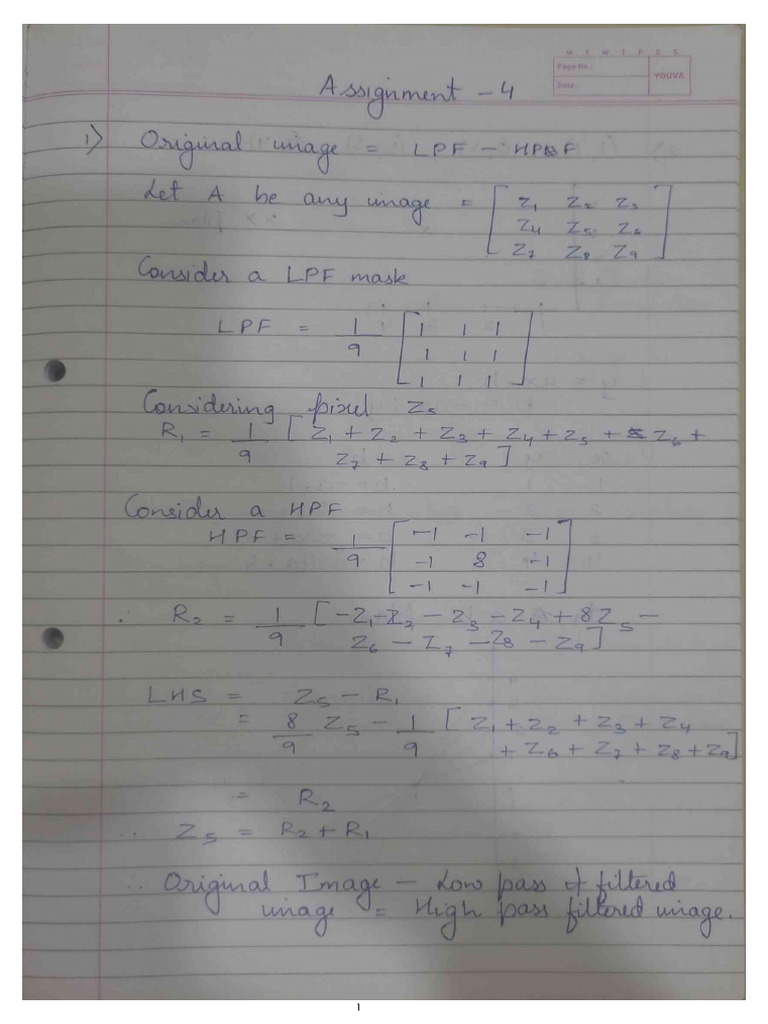 M T W T F S S
Page No.:
YOUVA
Date:
Assignment - 4
1) Original image = LPF - HPF
Let A be any image = [ Z1 Z2 Z3
Z4 Z5 Z6
Z7 Z8 Z9 ]
Consider a LPF mask
LPF = 1/9 [ 1 1 1
1 1 1
1 1 1 ]
Considering pixel Z5
R1 = 1/9 [ Z1 + Z2 + Z3 + Z4 + Z5 + Z6 +
Z7 + Z8 + Z9 ]
Consider a HPF
HPF = 1/9 [ -1 -1 -1
-1 8 -1
-1 -1 -1 ]
∴ R2 = 1/9 [ -Z1 - Z2 - Z3 - Z4 + 8Z5 -
Z6 - Z7 - Z8 - Z9 ]
LHS = Z5 - R1
= 8/9 Z5 - 1/9 [ Z1 + Z2 + Z3 + Z4
+ Z6 + Z7 + Z8 + Z9 ]
= R2
∴ Z5 = R2 + R1
∴ Original Image - Low pass filtered
image = High pass filtered image.
1